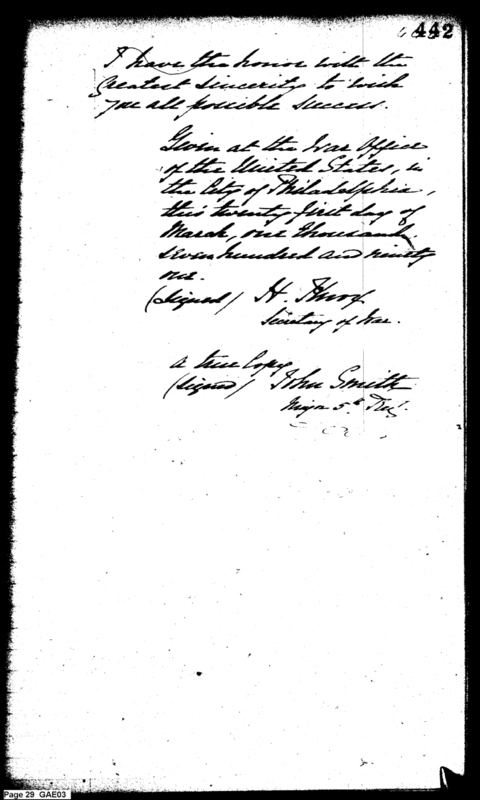 442
I have the honor with the
greatest sincerity to wish
you all possible success.
Given at the War Office
of the United States, in
the City of Philadelphia,
this twenty first day of
March, one thousand
seven hundred and ninety
one.
(signed) H. Knox
Secretary of War.
a true Copy
(signed) John Smith
Major 5th Regt.
Page 29 GAE03